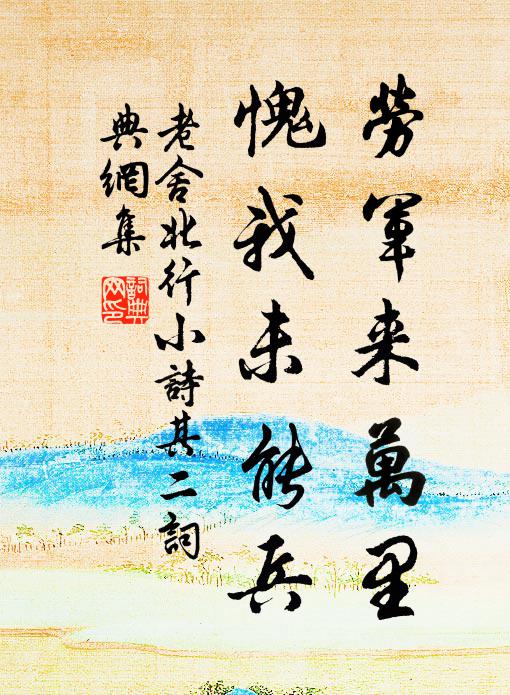 勞軍来萬里
愧我未能兵
老舍北行小詩其二詞
典網集
詞典
网印